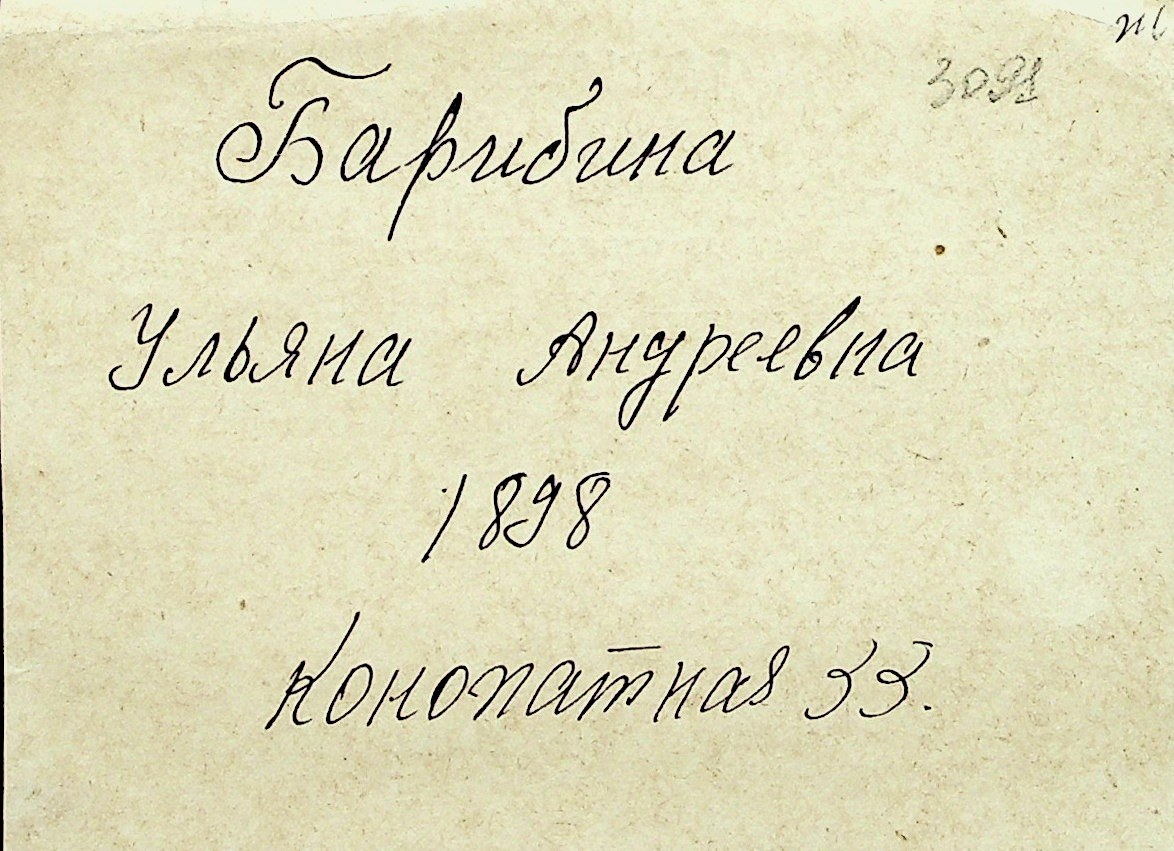 3091
Барибина
Ульяна Андреевна
1898
Конопатная 33.